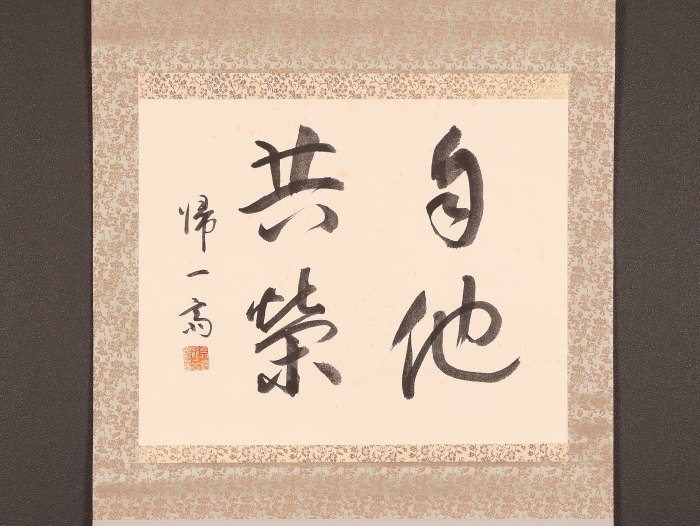 自他
共榮
帰一斎